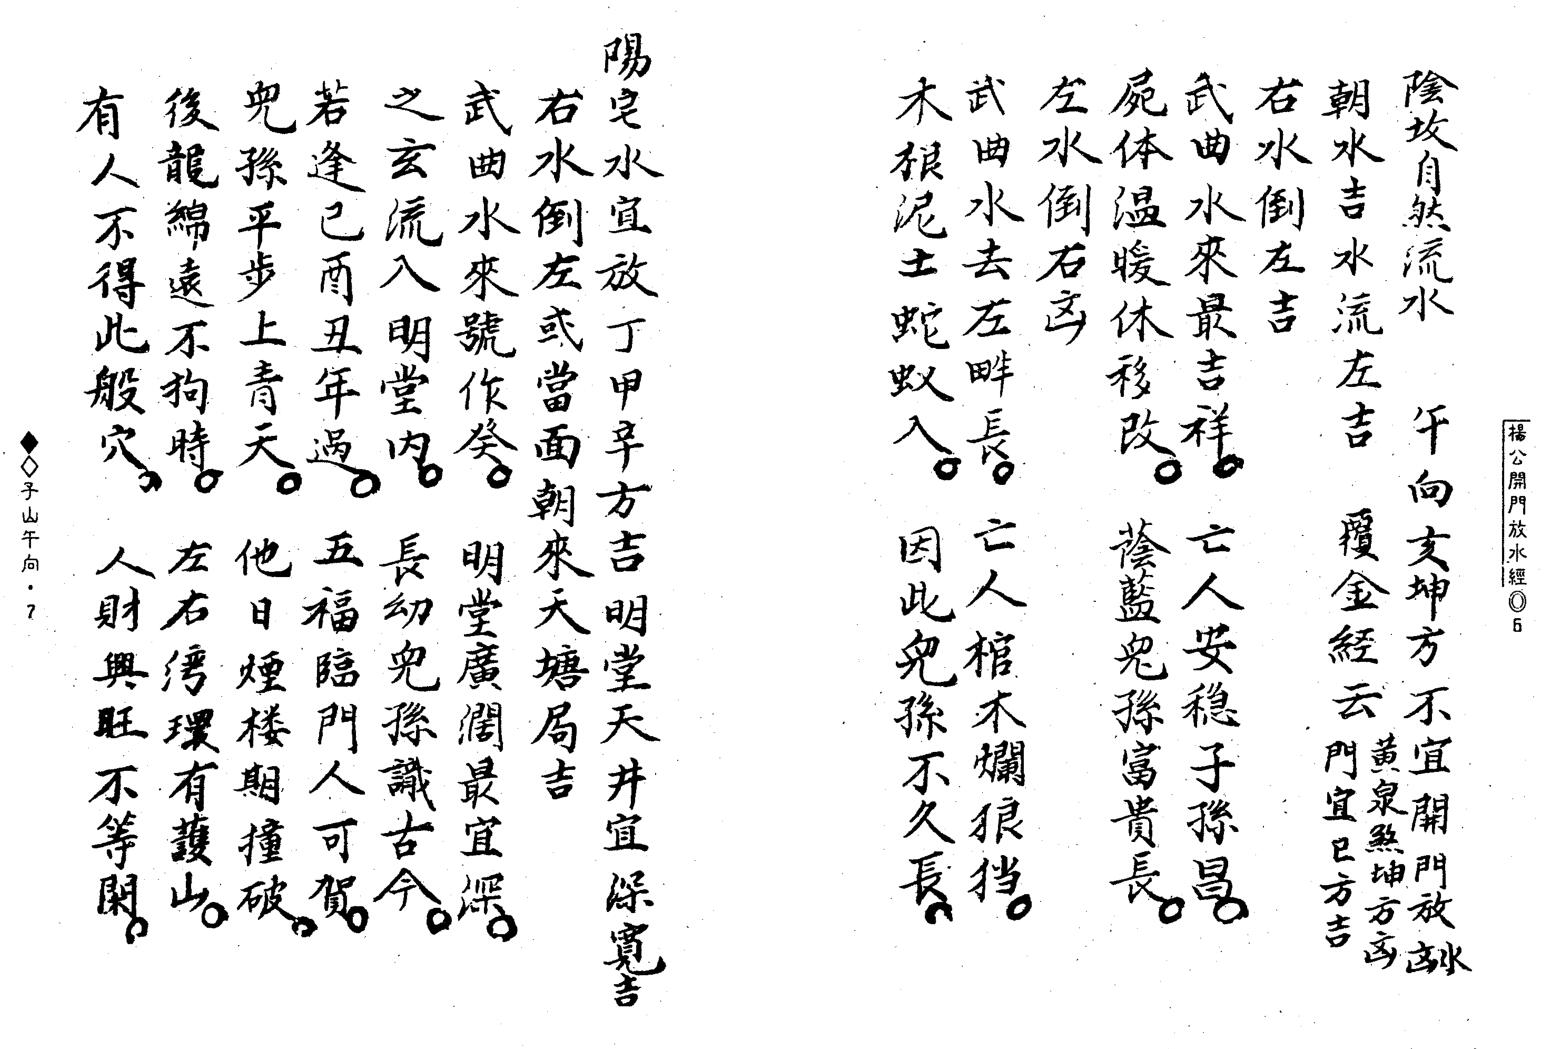 楊公開門放水經◎6
陰坟自然流水　午向亥坤方不宜開門放水凶
黄泉煞坤方凶
朝水吉水流左吉　覆金経云　門宜巳方吉
右水倒左吉
武曲水來最吉祥。亡人安稳子孫昌。
屍体温暖休移改。蔭藍兒孫富貴長。
左水倒右凶
武曲水去左畔長。亡人棺木爛狼挡。
木根泥土蛇蚁入。因此兒孫不久長。
陽宅水宜放丁甲辛方吉明堂天井宜深寬吉
右水倒左或當面朝來天塘局吉
武曲水來號作癸。明堂廣濶最宜深。
之玄流入明堂内。長幼兒孫識古今。
若逢巳酉丑年過。五福臨門人可賀。
兒孫平步上青天。他日煙楼期撞破。
後龍綿遠不狗時。左右湾環有護山。
有人不得此般穴。人財興旺不等閑。
◆◇子山午向・7